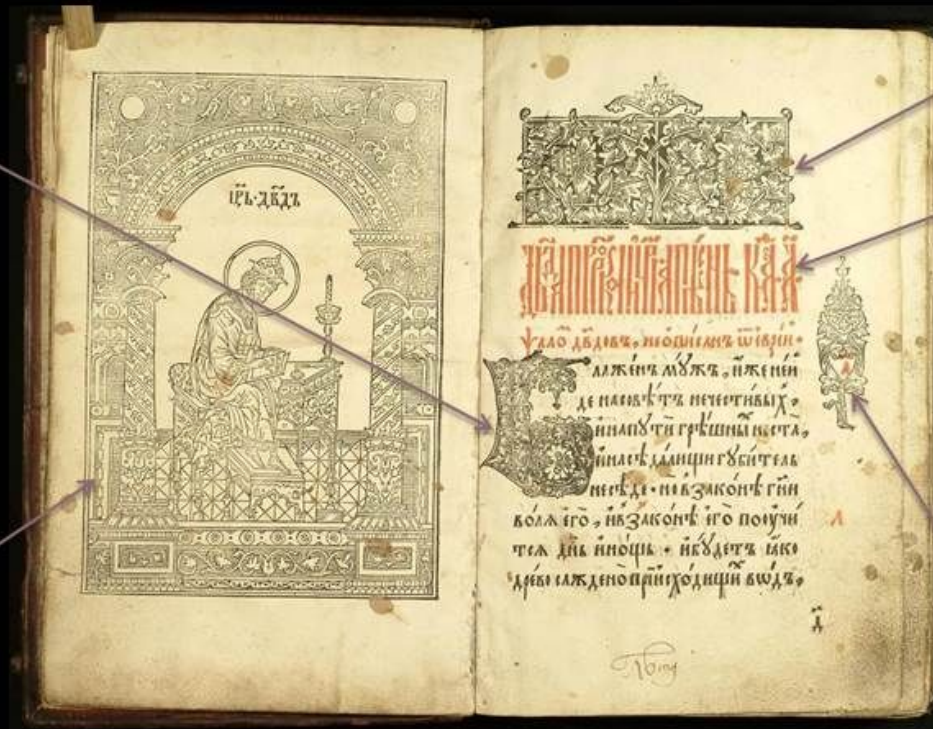 цр҃ь·дв҃дъ
ѱало́ дв҃довъ, неѻписанъ ѿеврѣ́и·
Блаже́нъ мꙋ́жъ, и҆́же неи́
де насовѣ́тъ нечести́выхъ,
и҆напꙋти́ грѣ́шныⷯ неста̀,
и҆насѣда́лищи гꙋби́тель
несѣ́де· новзако́нѣ гн҃и
во́лѧ є҆гѡ̀, и҆взако́нѣ є҆го̀ поꙋчи́
тсѧ дн҃ь и҆но́щь · и҆бꙋ́детъ ꙗ҆́ко
дре́во сажде́но прїи҆схо́дищи вѡ́дъ,
а҃
л
д҃